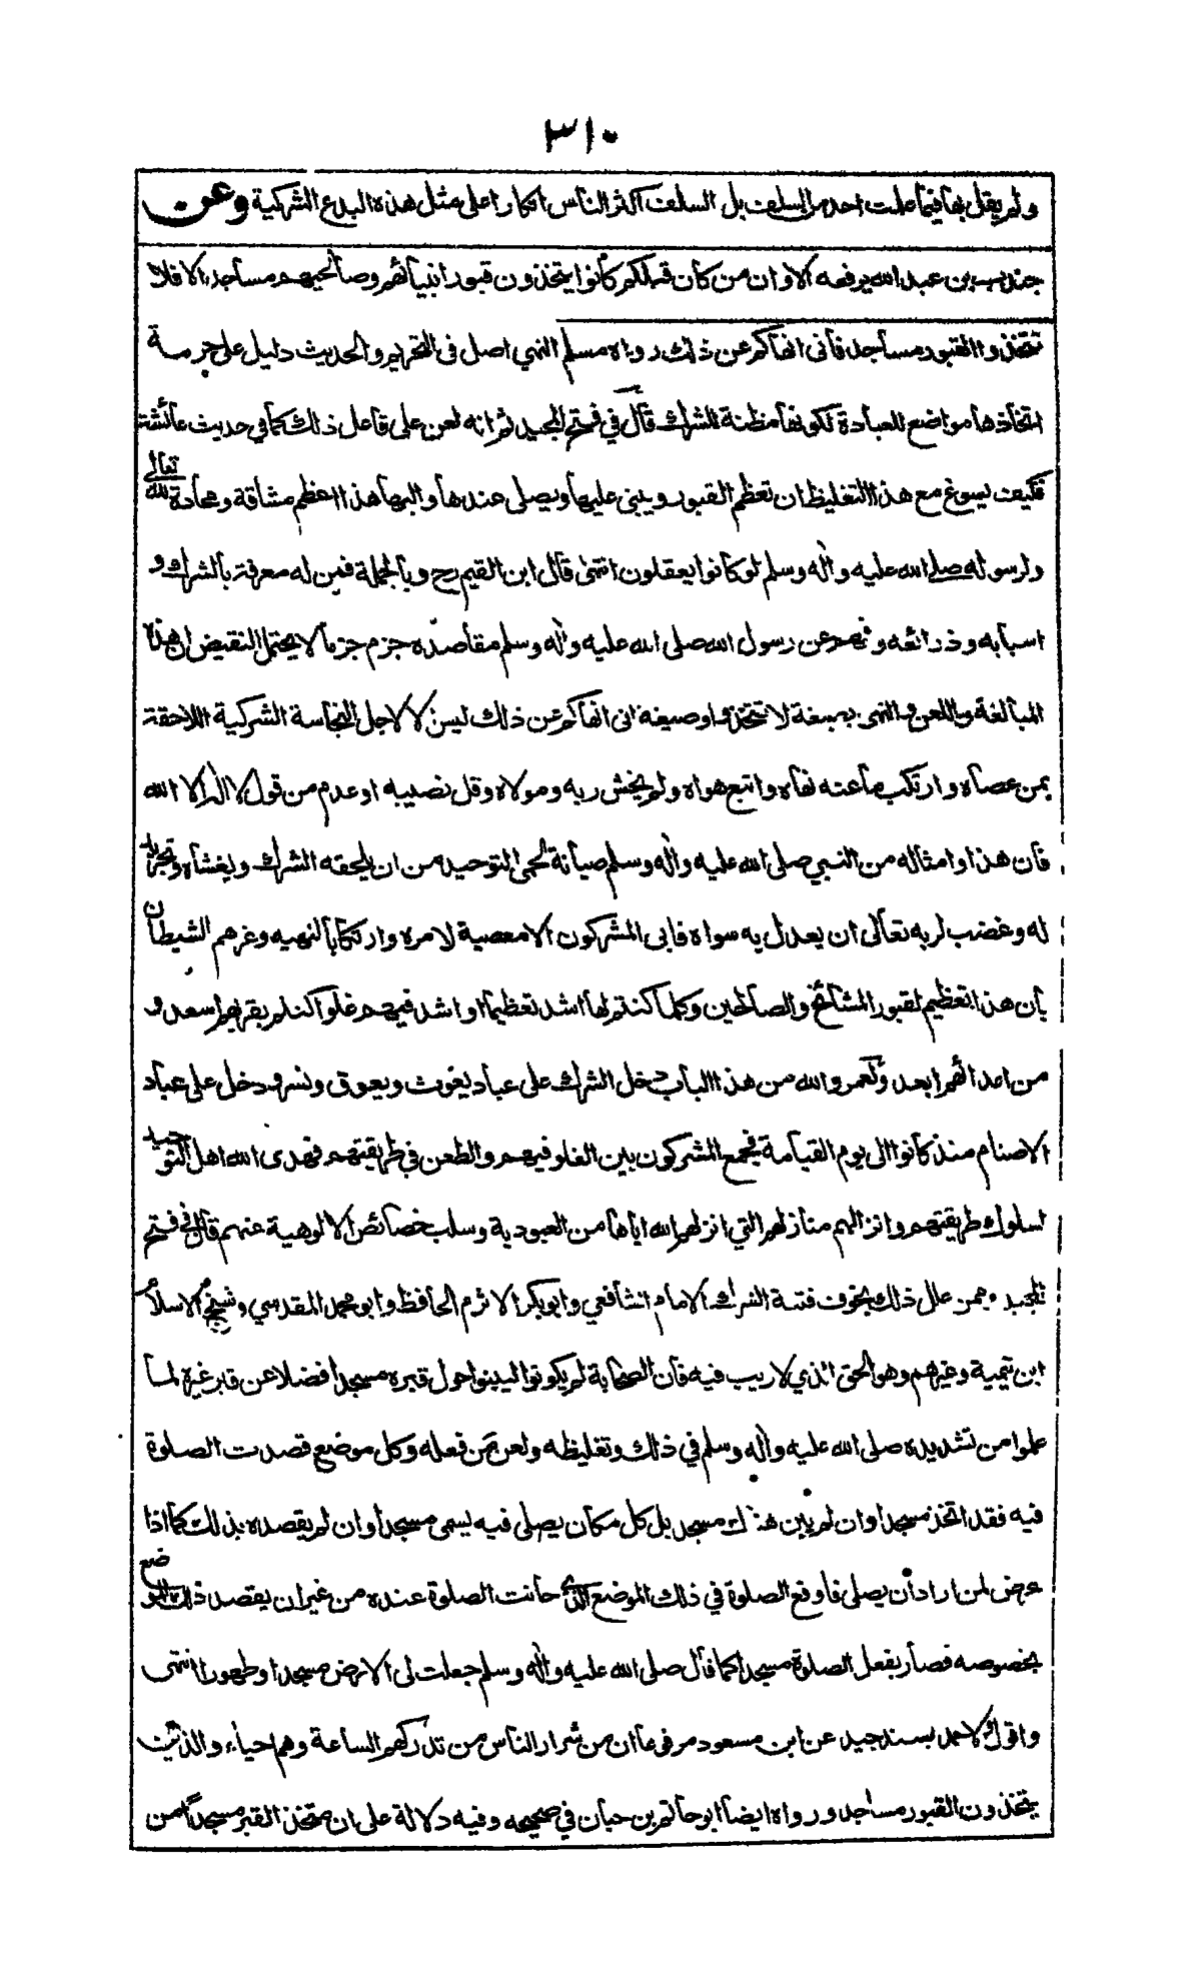 ٣١٠
ولم يقل بها فيما علمت احد من السلف بل السلف اكثر الناس انكارا على مثل هذه البدع الشركية وعن
جندب بن عبد الله يرفعه الا وان من كان قبلكم كانوا يتخذون قبور انبيائهم وصالحيهم مساجد الا فلا
تتخذوا القبور مساجد فانى انهاكم عن ذلك رواه مسلم النهي اصل فى التحريم والحديث دليل على حرمة
اتخاذها مواضع للعبادة لكونها مظنة للشرك قال في فتح المجيد ثم انه لعن على فاعل ذلك كما في حديث عائشة
فكيف يسوغ مع هذا التغليظ ان تعظم القبور ويبنى عليها ويصلى عندها واليها هذا اعظم مشاقة ومحادة لله تعالى
ولرسوله صلى الله عليه واله وسلم لو كانوا يعقلون انتهى قال ابن القيم رح وبالجملة فمن له معرفة بالشرك و
اسبابه وذرائعه وفهم عن رسول الله صلى الله عليه واله وسلم مقاصده جزم جزما لا يحتمل النقيض ان هذه
المبالغة واللعن والنهي بصيغة لا تتخذوا وصيغة انى انهاكم عن ذلك ليس لاجل النجاسة الشركية اللاحقة
بمن عصاه وارتكب ما عنه نهاه واتبع هواه ولم يخش ربه ومولاه وقل نصيبه او عدم من قول لا اله الا الله
فان هذا وامثاله من النبي صلى الله عليه واله وسلم صيانة لحمى التوحيد من ان يلحقه الشرك ويغشاه وتجريد
له وغضب لربه تعالى ان يعدل به سواه فابى المشركون الا معصية لامره وارتكابا لنهيه وغرهم الشيطان
بان هذا تعظيم لقبور المشائخ والصالحين وكلما كنتم لها اشد تعظيما واشد فيهم غلوا كنتم بقربهم اسعد و
من اعدائهم ابعد ولعمر والله من هذا الباب دخل الشرك على عباد يغوث ويعوق ونسر ودخل على عباد
الاصنام منذ كانوا الى يوم القيامة فجمع المشركون بين الغلو فيهم والطعن في طريقتهم فهدى الله اهل التوحيد
لسلوك طريقتهم وانزالهم منازلهم التي انزلهم الله اياها من العبودية وسلب خصائص الالوهية عنهم قال في فتح
المجيد وممن علل ذلك بخوف فتنة الشرك الامام الشافعي وابوبكر الاثرم الحافظ وابو محمد المقدسي وشيخ الاسلام
ابن تيمية وغيرهم وهو الحق الذي لا ريب فيه فان الصحابة لم يكونوا ليبنوا حول قبره مسجدا فضلا عن قبر غيره لما
علموا من تشديده صلى الله عليه واله وسلم في ذلك وتغليظه ولعن من فعله وكل موضع قصدت الصلوة
فيه فقد اتخذ مسجدا وان لم يبن هناك مسجد بل كل مكان يصلى فيه يسمى مسجدا وان لم يقصده بذلك كما اذا
عرض لمن اراد ان يصلى فاوقع الصلوة في ذلك الموضع الذي حانت الصلوة عنده من غير ان يقصد ذلك الموضع
بخصوصه فصار بفعل الصلوة مسجدا كما قال صلى الله عليه واله وسلم جعلت لى الارض مسجدا وطهورا انتهى
واقول ولاحمد بسند جيد عن ابن مسعود مرفوعا ان من شرار الناس من تدركهم الساعة وهم احياء والذين
يتخذون القبور مساجد ورواه ايضا ابو حاتم بن حبان في صحيحه وفيه دلالة على ان متخذ القبر مسجدا من